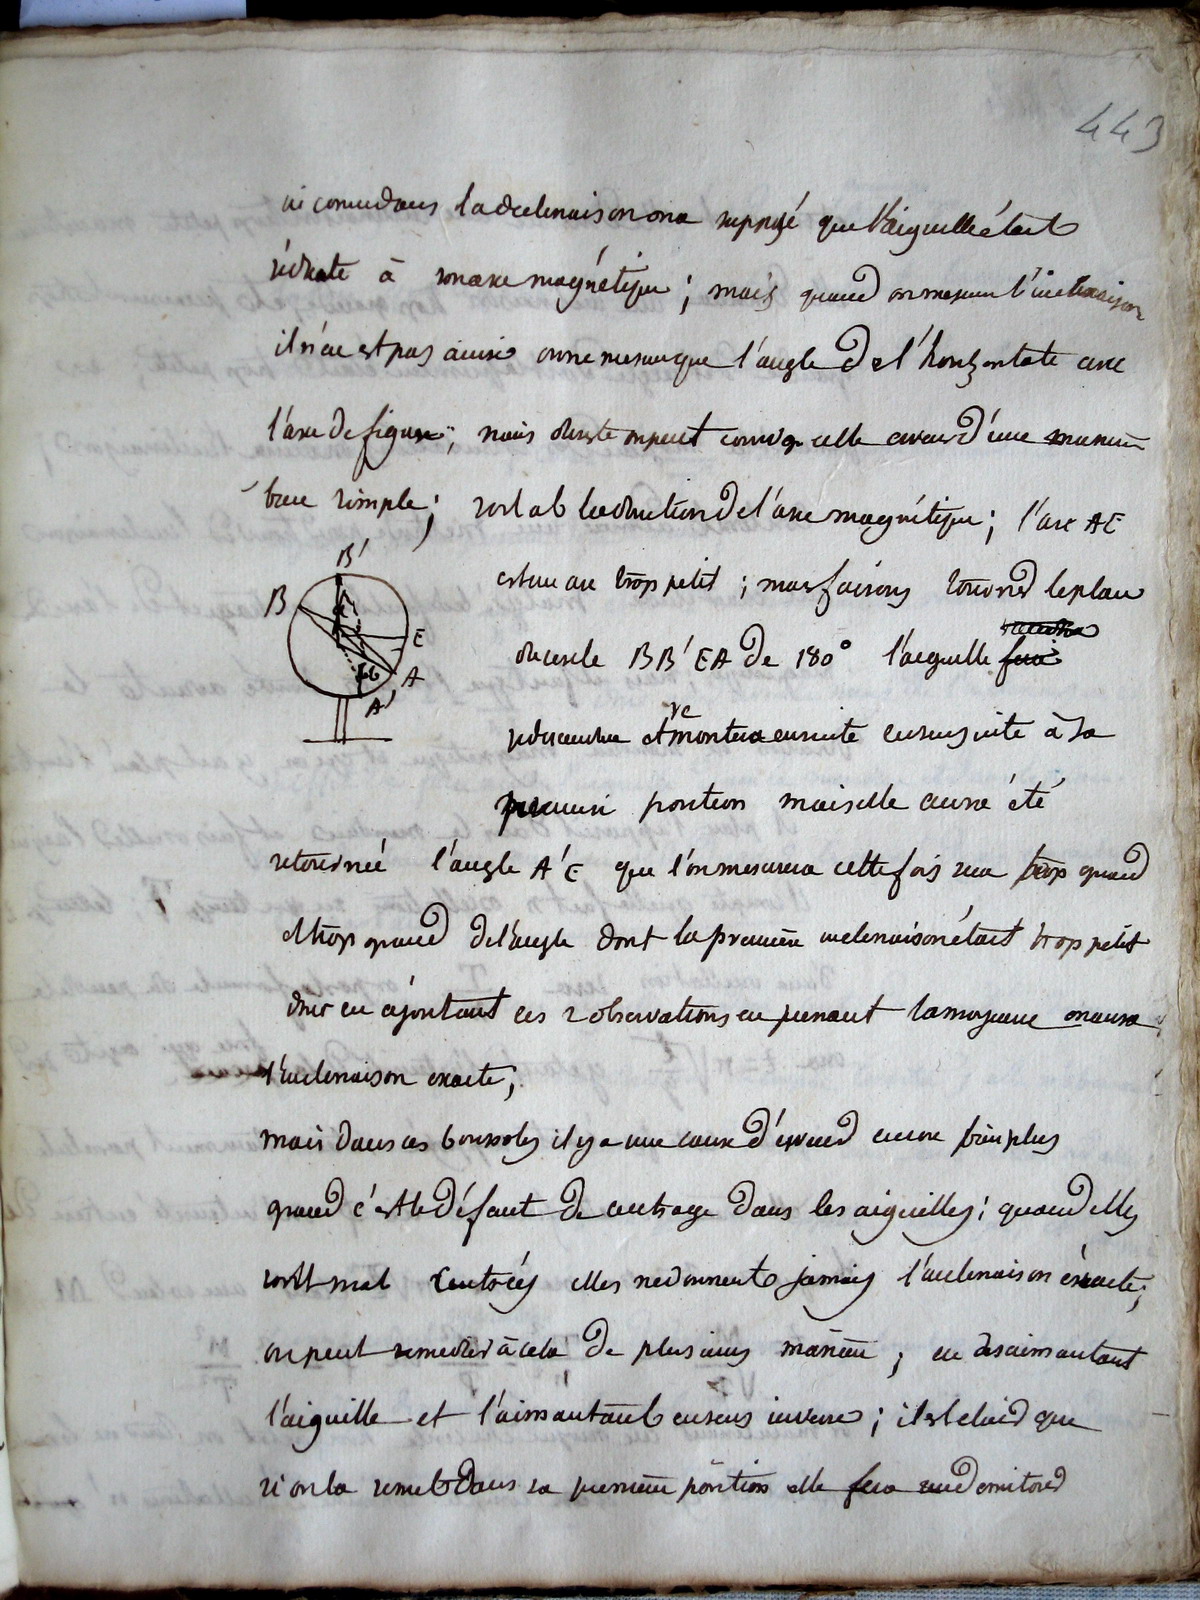 443
ici comme dans la declenaison on a supposé que l'aiguille était
réduite à son axe magnétique ; mais quand on mesure l'inclinaison
il n'en est pas ainsi on ne mesure que l'angle de l'horizontale avec
l'axe de figure ; mais du reste on peut corriger cette erreur d'une maniere
bien simple ; soit ab la direction de l'axe magnétique ; l'arc AE
est un arc trop petit ; mais faisons tourner le plan
du cercle BB'EA de 180° l'aiguille
redescendra et remontera ensuite à sa
premiere position mais elle aura été
retournée l'angle A'E que l'on mesurera cette fois sera trop grand
et trop grand de l'angle dont la première inclenaison était trop petit
donc en ajoutant ces 2 observations en prenant la moyenne on aura
l'inclenaison exacte ;
mais dans ces boussoles il y a une cause d'erreur encore bien plus
grand c'est le défaut de centrage dans les aiguilles ; quand elles
sont mal centrées elles ne donnent jamais l'inclenaison éxacte ;
on peut remedier à cela de plusieurs manière ; en desaimantant
l'aiguille et l'aimantant en sens inverse ; il est clair que
si on la remet dans sa premiere position elle fera
B'
B
E
A
A'
a
b